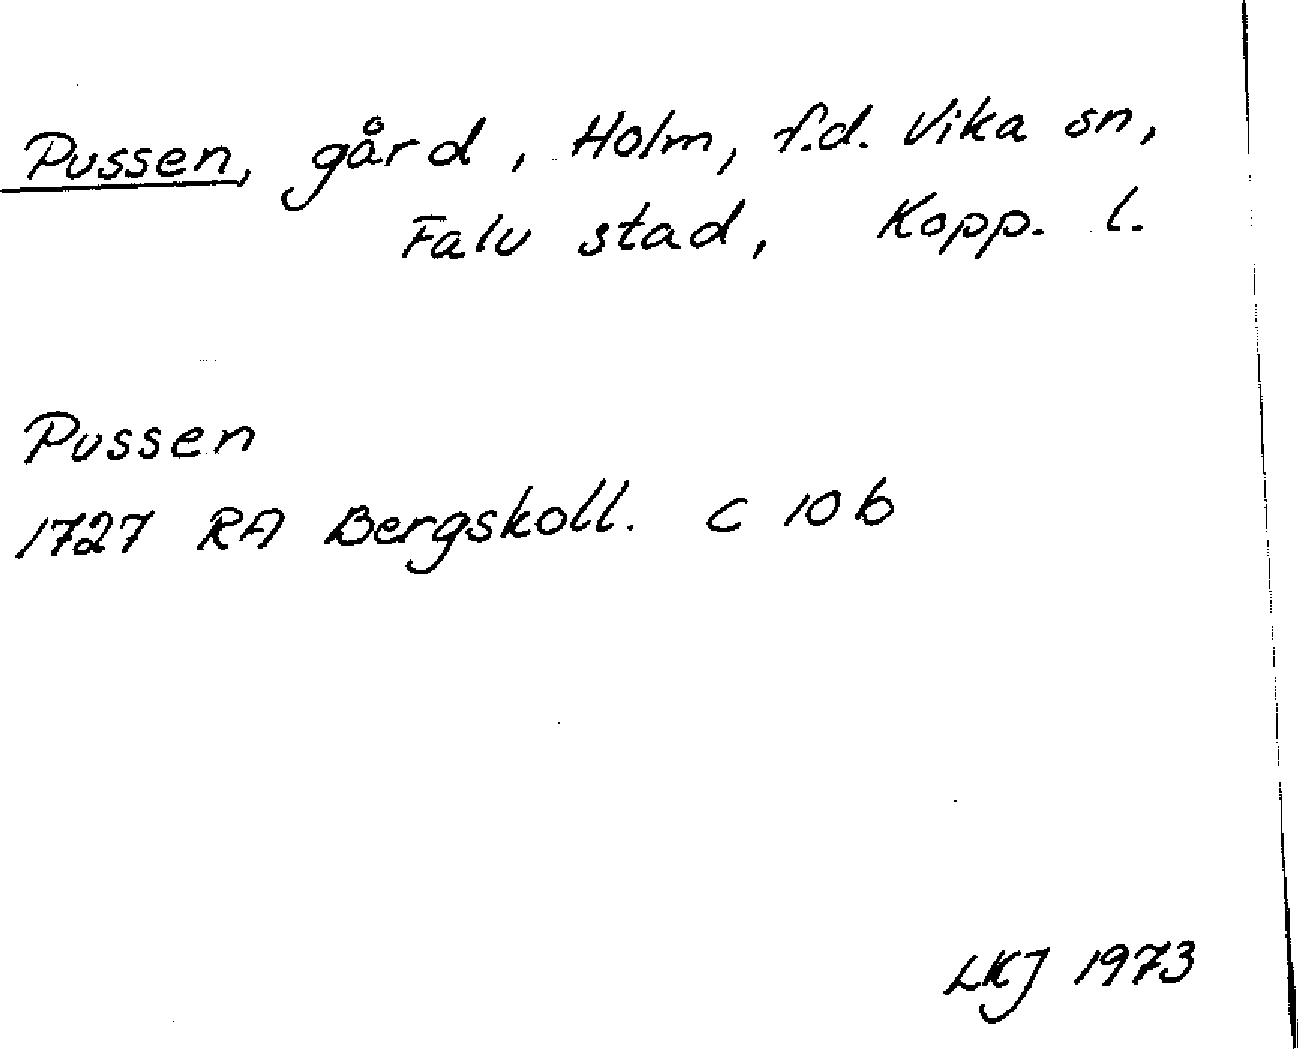 Pussen, gård, Holm, f.d. Vika sn,
Falu stad, Kopp. l.
Pussen
1727 RA Bergskoll. C 10 b
LKJ 1973